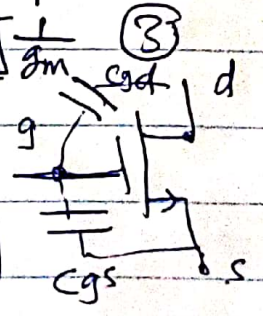 1/gm
③
cgd
d
g
cgs
s